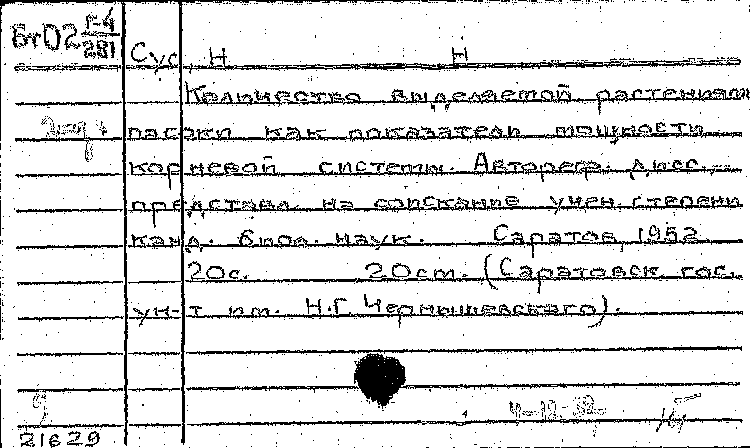 БтО2 Г-4/281
Сус, Н Н
Количество выделяемой растениями
2 экз.
пасоки как показатели мощности
корневой системы. Автореф. дисс.,
представл. на соискание учен. степени
канд. биол. наук. Саратов, 1952.
20с. 20см. (Саратовск. гос.
ун-т им. Н.Г. Чернышевского).
21629